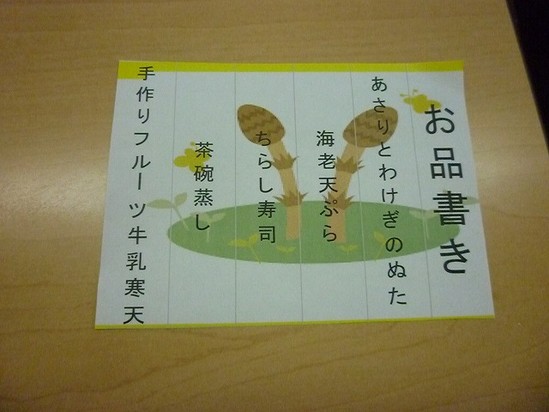 お品書き
あさりとわけぎのぬた
海老天ぷら
ちらし寿司
茶碗蒸し
手作りフルーツ牛乳寒天